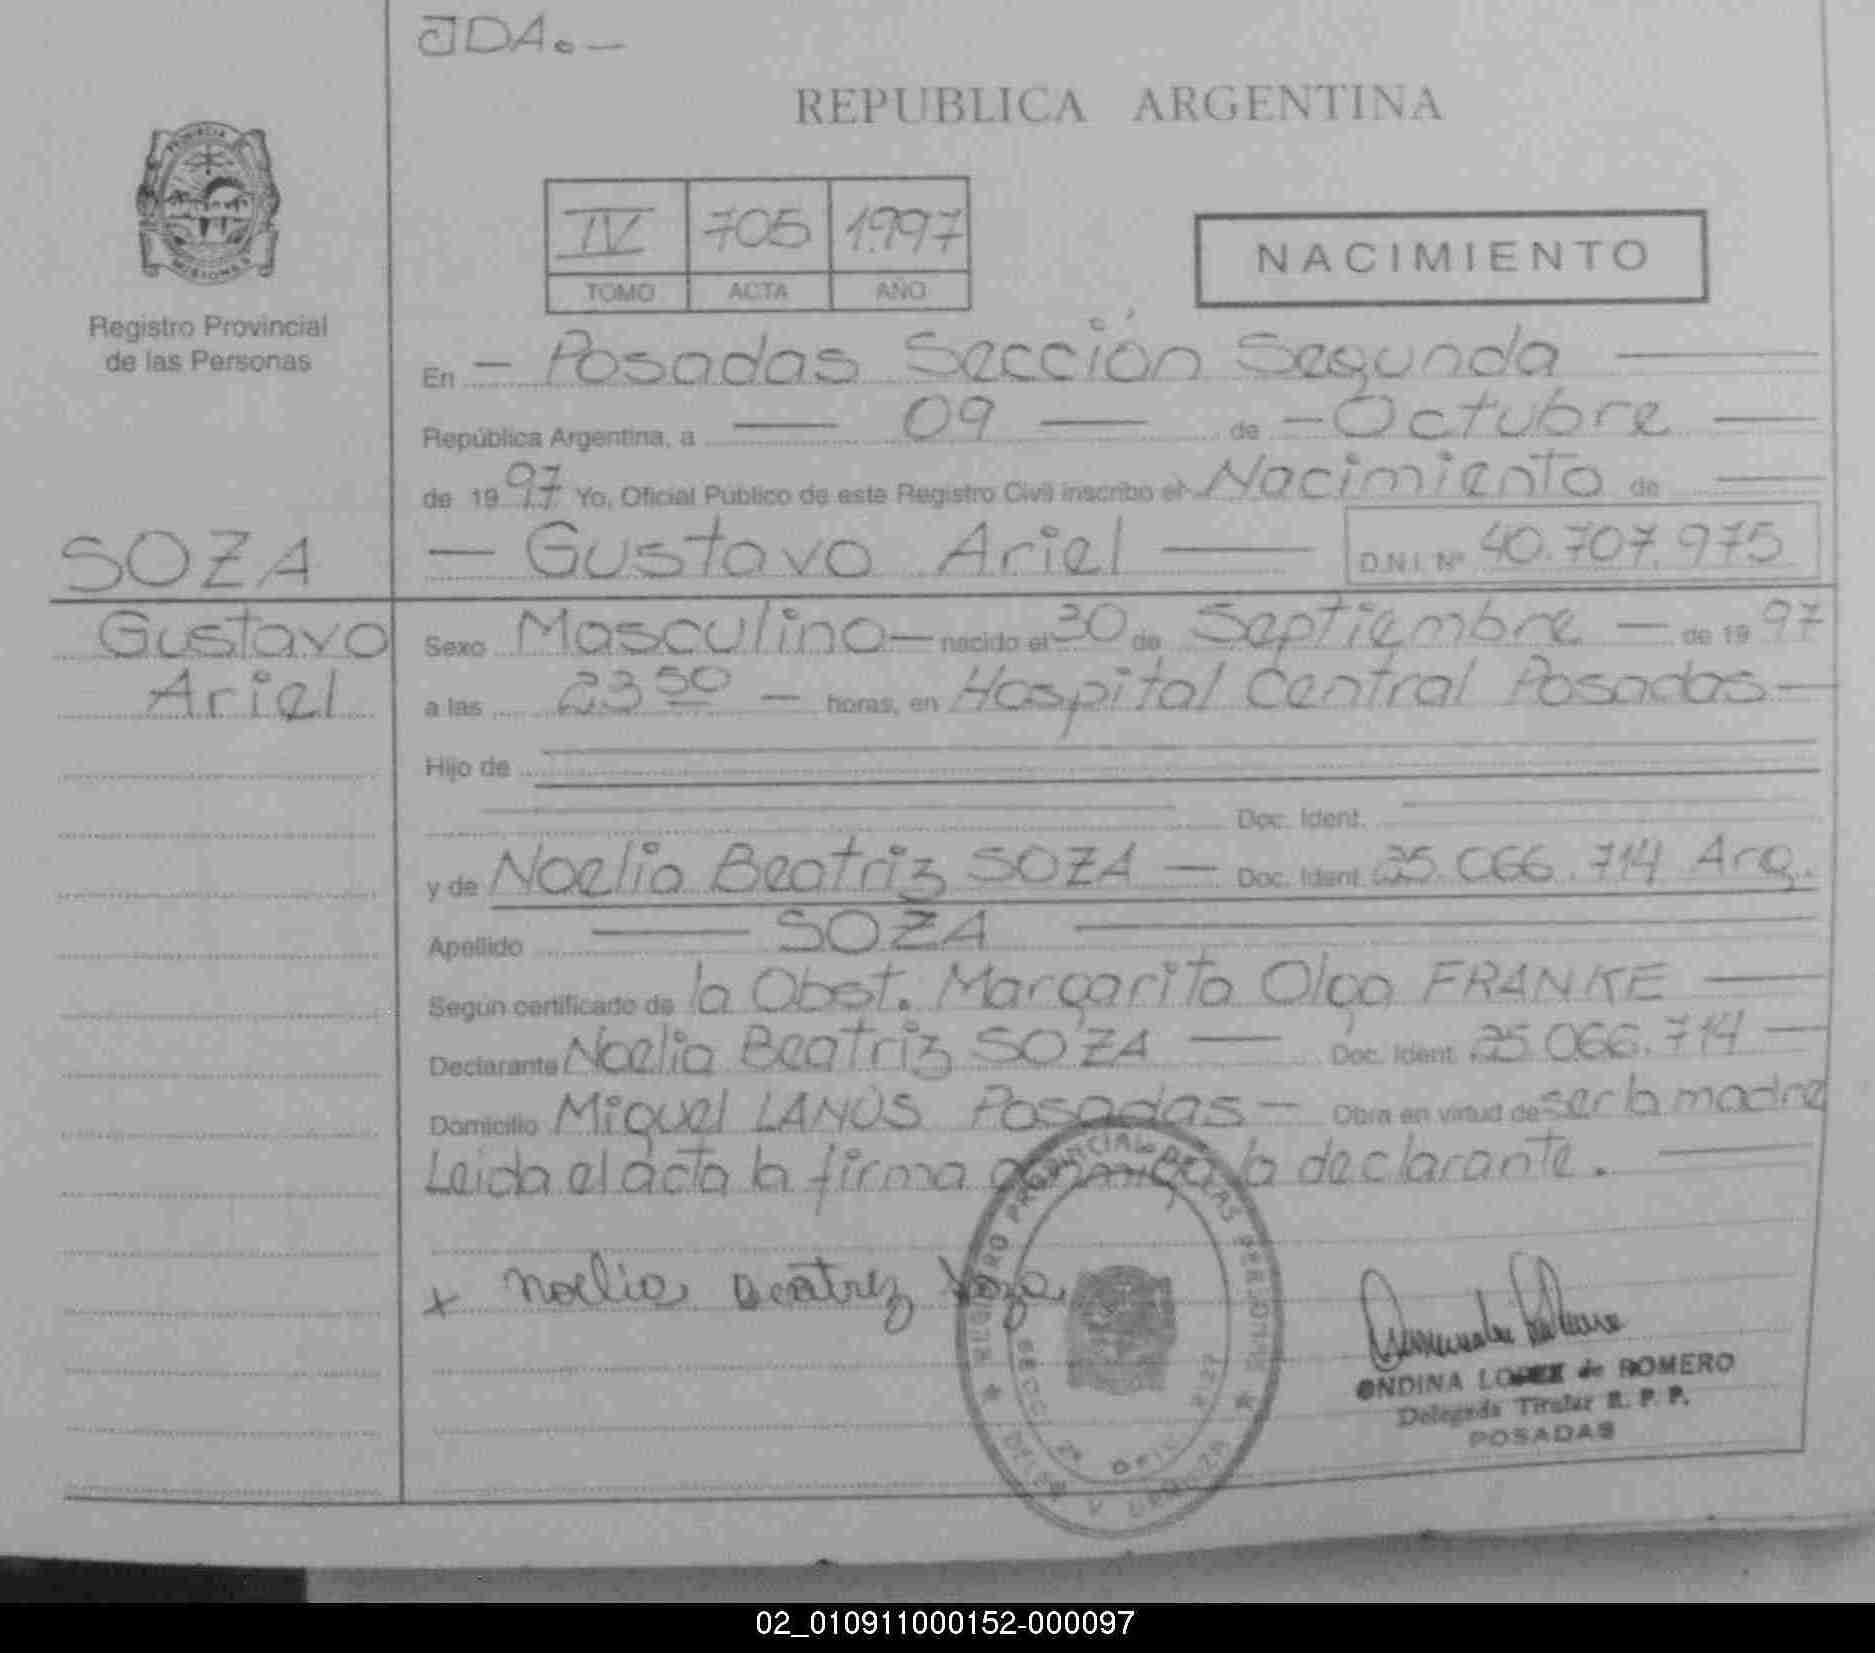 JDA.—
REPUBLICA ARGENTINA
PROVINCIA
MISIONES
Registro Provincial
de las Personas
IV 705 1997
TOMO ACTA AÑO
NACIMIENTO
En — Posadas Sección Segunda —
República Argentina, a — 09 — de — Octubre —
de 1997 Yo, Oficial Público de este Registro Civil inscribo el Nacimiento de —
SOZA
— Gustavo Ariel — D.N.I. Nº 40.707.975
Gustavo
Ariel
Sexo Masculino — nacido el 30 de Septiembre — de 1997
a las 23 50 — horas, en Hospital Central Posadas —
Hijo de
Doc. Ident.
y de Noelia Beatriz SOZA — Doc. Ident. 25.066.714 Arg.
Apellido — SOZA —
Según certificado de la Obst. Margarita Olga FRANKE —
Declarante Noelia Beatriz SOZA — Doc. Ident. 25.066.714 —
Domicilio Miguel LANÚS Posadas — Obra en virtud de ser la madre
Leida el acta la firma conmigo la declarante. —
x Noelia Beatriz Soza
REGISTRO PROVINCIAL DE LAS PERSONAS
ONDINA LOPEZ de ROMERO
Delegada Titular R. P. P.
POSADAS
02_010911000152-000097